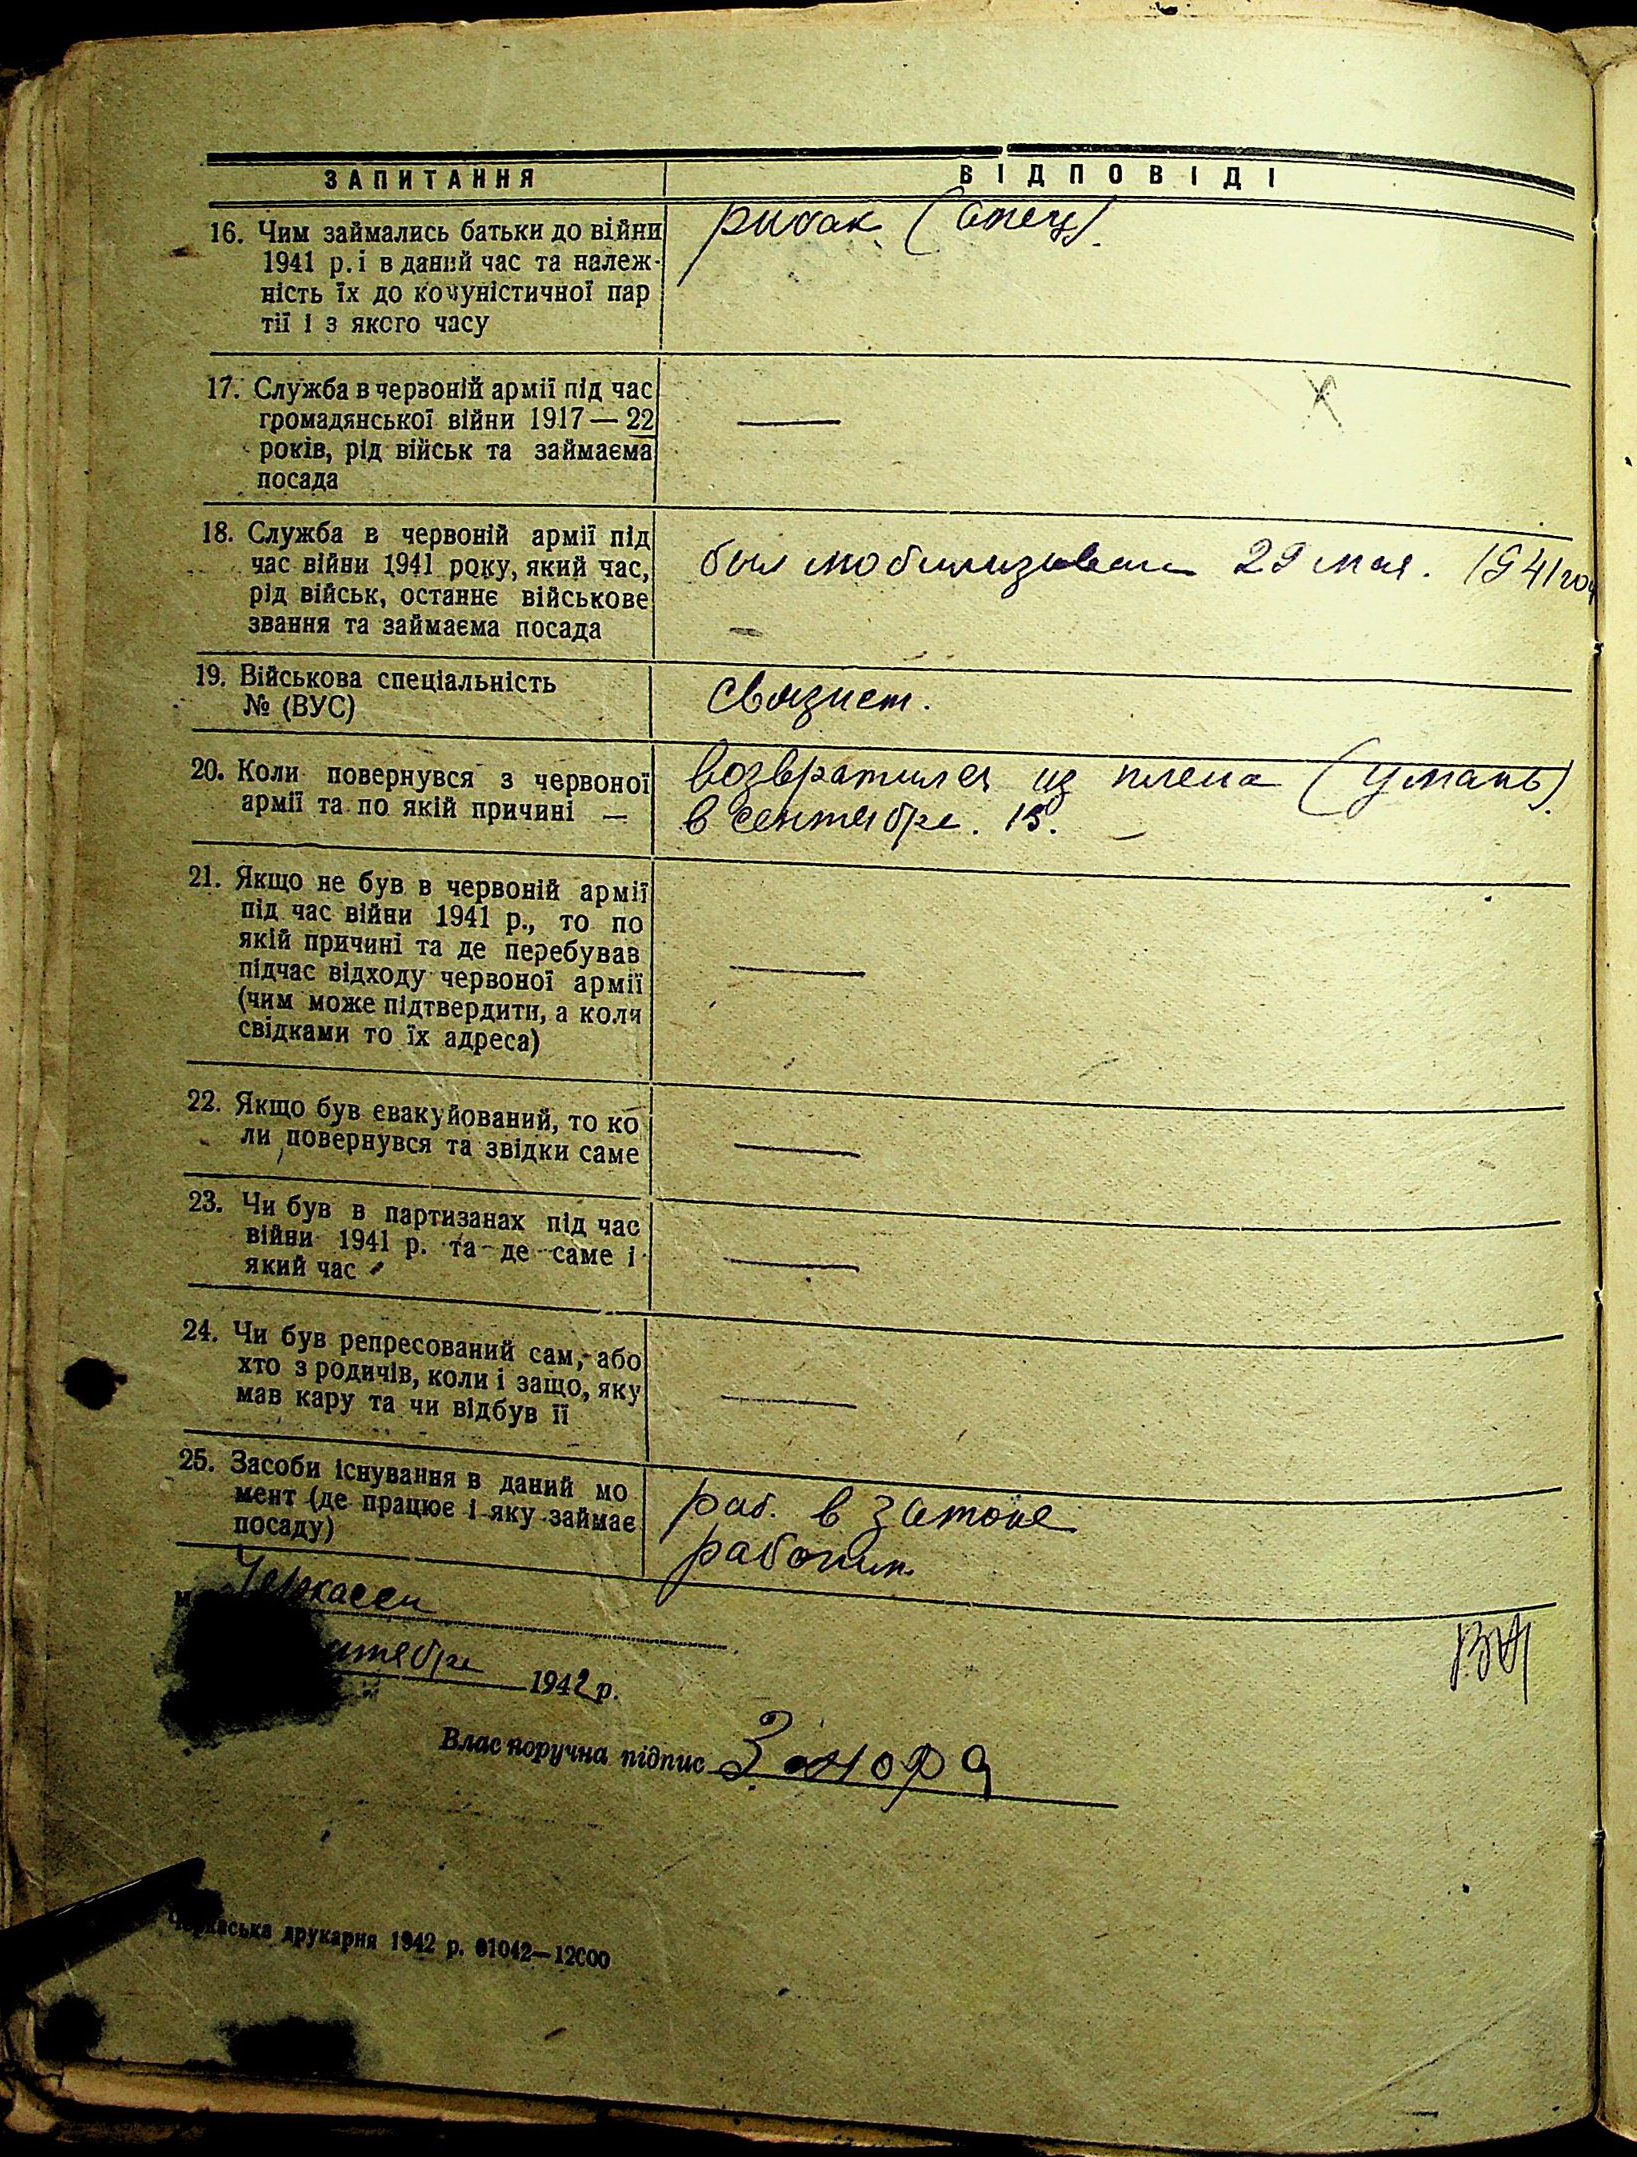 ЗАПИТАННЯ
ВІДПОВІДІ
16. Чим займались батьки до війни
1941 р. і в даний час та належ-
ність їх до комуністичної пар
тії і з якого часу
рибак (отец).
17. Служба в червоній армії під час
громадянської війни 1917—22
років, рід військ та займаєма
посада
—
18. Служба в червоній армії під
час війни 1941 року, який час,
рід військ, останнє військове
звання та займаєма посада
был мобилизован 29 мая. 1941 год
19. Військова спеціальність
№ (ВУС)
Связист.
20. Коли повернувся з червоної
армії та по якій причині —
возвратился из плена (Умань).
в сентябре. 15.
21. Якщо не був в червоній армії
під час війни 1941 р., то по
якій причині та де перебував
підчас відходу червоної армії
(чим може підтвердити, а коли
свідками то їх адреса)
—
22. Якщо був евакуйований, то ко
ли повернувся та звідки саме
—
23. Чи був в партизанах під час
війни 1941 р. та де саме і
який час
—
24. Чи був репресований сам, або
хто з родичів, коли і защо, яку
мав кару та чи відбув її
—
25. Засоби існування в даний мо
мент (де працює і яку займає
посаду)
раб. в затоне
рабочим.
м. Черкассы
1942 р.
Власноручна підпис
друкарня 1942 р. 01042—12000